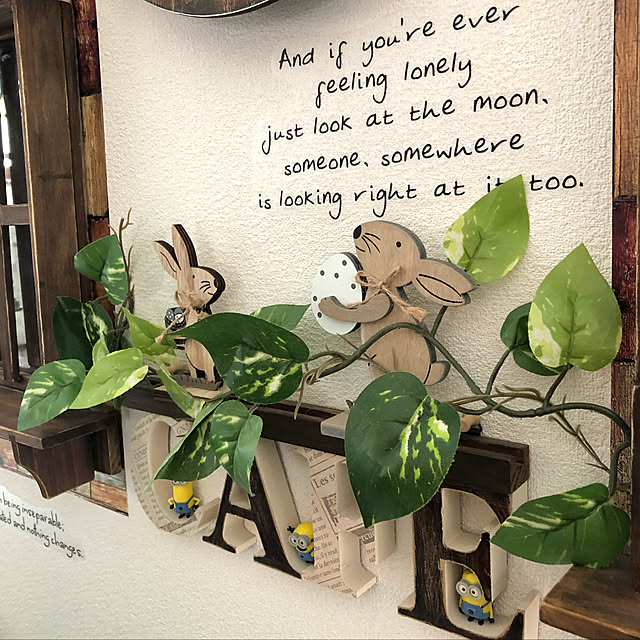 And if you're ever
feeling lonely
just look at the moon.
someone, somewhere
is looking right at it too.
CAFE
being inseparable;
and nothing changes.
Les